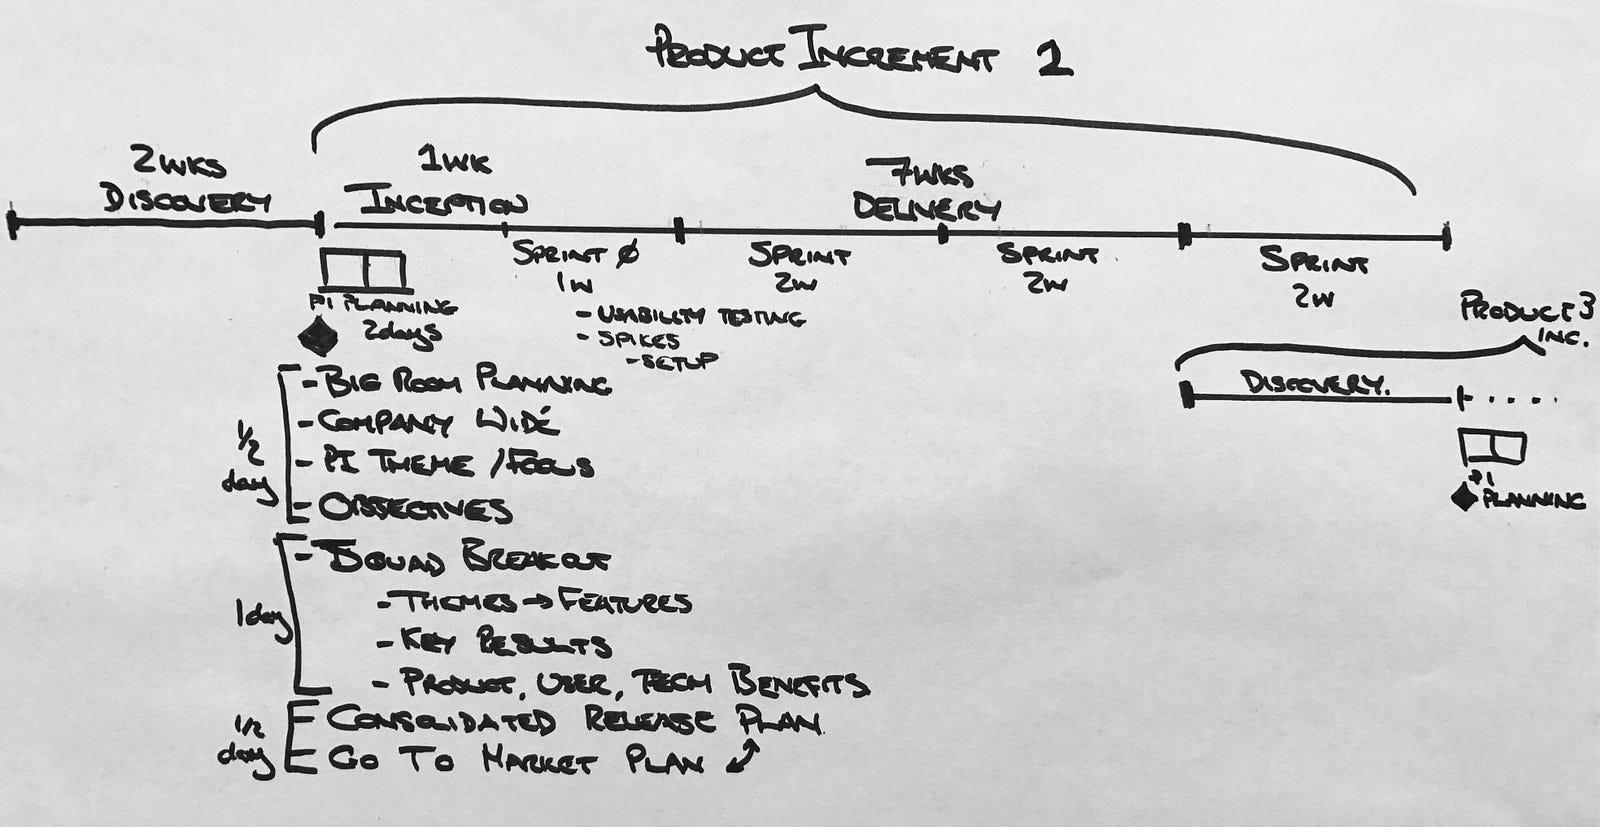 PRODUCT INCREMENT 2
2WKS
DISCOVERY
1WK
INCEPTION
7WKS
DELIVERY
SPRINT Ø
1W
- USABILITY TESTING
- SPIKES
- SETUP
SPRINT
2W
SPRINT
2W
SPRINT
2W
PI PLANNING
2days
1/2
day
- BIG ROOM PLANNING
- COMPANY WIDE
- PI THEME / FOCUS
- OBJECTIVES
1day
- SQUAD BREAKOUT
- THEMES → FEATURES
- KEY RESULTS
- PRODUCT, USER, TECH BENEFITS
1/2
day
- CONSOLIDATED RELEASE PLAN
- GO TO MARKET PLAN
PRODUCT 3
INC.
DISCOVERY.
PI
PLANNING